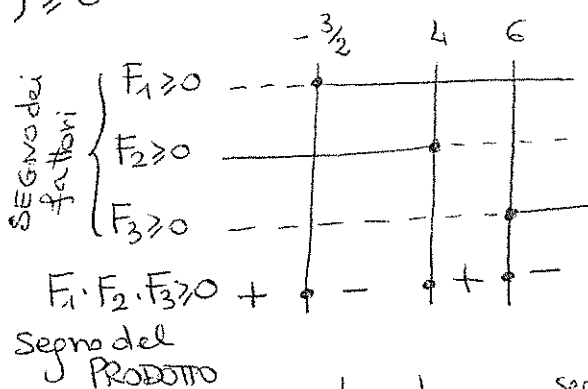 ≥ 0
- 3/2 4 6
SEGNO dei fattori
F₁ ≥ 0
F₂ ≥ 0
F₃ ≥ 0
F₁ · F₂ · F₃ ≥ 0 + - + -
Segno del
PRODOTTO